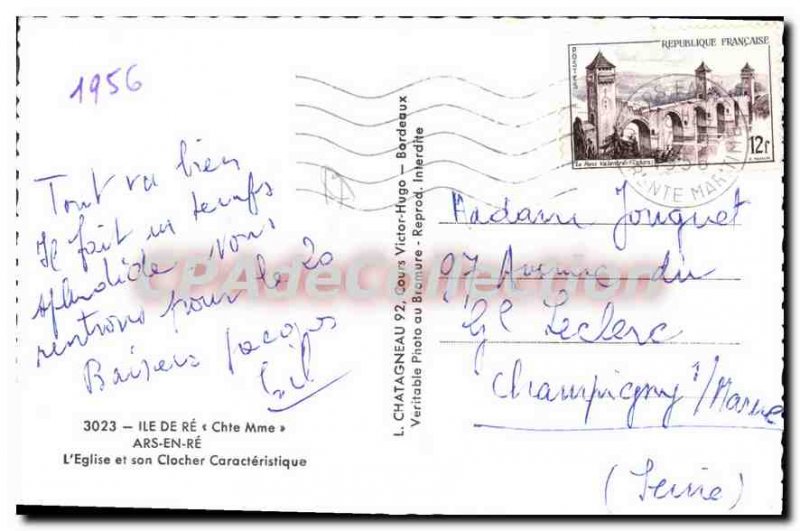 1956
Tout va bien
Il fait un temps
splendide. Nous
rentrons pour le 20
Baisers Jacques
3023 — ILE DE RÉ « Chte Mme »
ARS-EN-RÉ
L'Eglise et son Clocher Caractéristique
L. CHATAGNEAU 92, Cours Victor-Hugo — Bordeaux
Veritable Photo au Bromure - Reprod. Interdite
RÉPUBLIQUE FRANÇAISE
POSTES
12F
CHARENTE MARITIME
Madame Jouquet
97 Avenue du
Gl Leclerc
Champigny s/Marne
(Seine)
CPAdeCollection